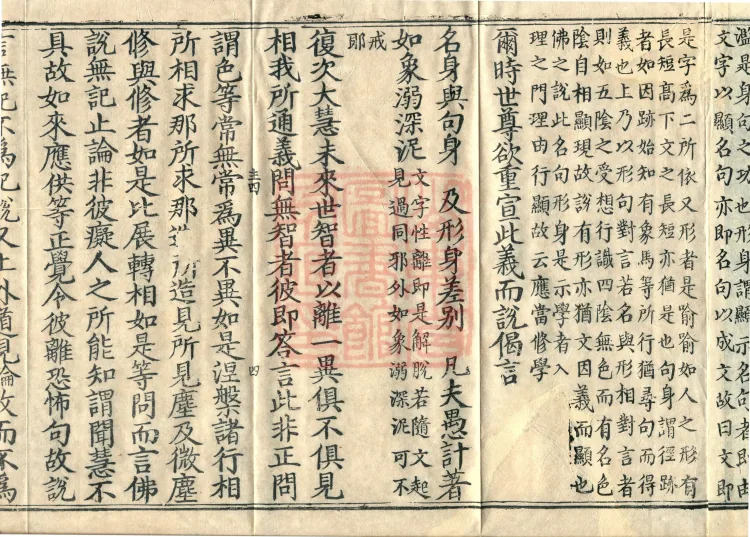 濫是身句之功也形身謂顯示名句者即由
文字以顯名句亦即名句以成文故曰文即
是字為二所依又形者是如人之形有
長短高下文之長短亦猶是也句身謂徑跡
者如因跡始知有象馬等所行猶尋句而得
義也上乃以形句對言若名與形相對言者
則如五陰之受想行識四陰無色而有名色
陰自相顯現故說有形亦猶文因義而顯也
佛之說此名句形身是示學者入
理之門理由行顯故云應當修學
爾時世尊欲重宣此義而說偈言
名身與句身　及形身差別　凡夫愚計著
如象溺深泥
文字性離即是解脫若隨文起
見過同邪外如象溺深泥可不
戒
耶
復次大慧未來世智者以離一異俱不俱見
相我所通義問無智者彼即答言此非正問
四
謂色等常無常為異不異如是涅槃諸行相
所相求那所求那造所造見所見塵及微塵
修與修者如是比展轉相如是等問而言佛
說無記止論非彼癡人之所能知謂聞慧不
具故如來應供等正覺令彼離恐怖句故說
言無記不為記說又止外道見論故而不為